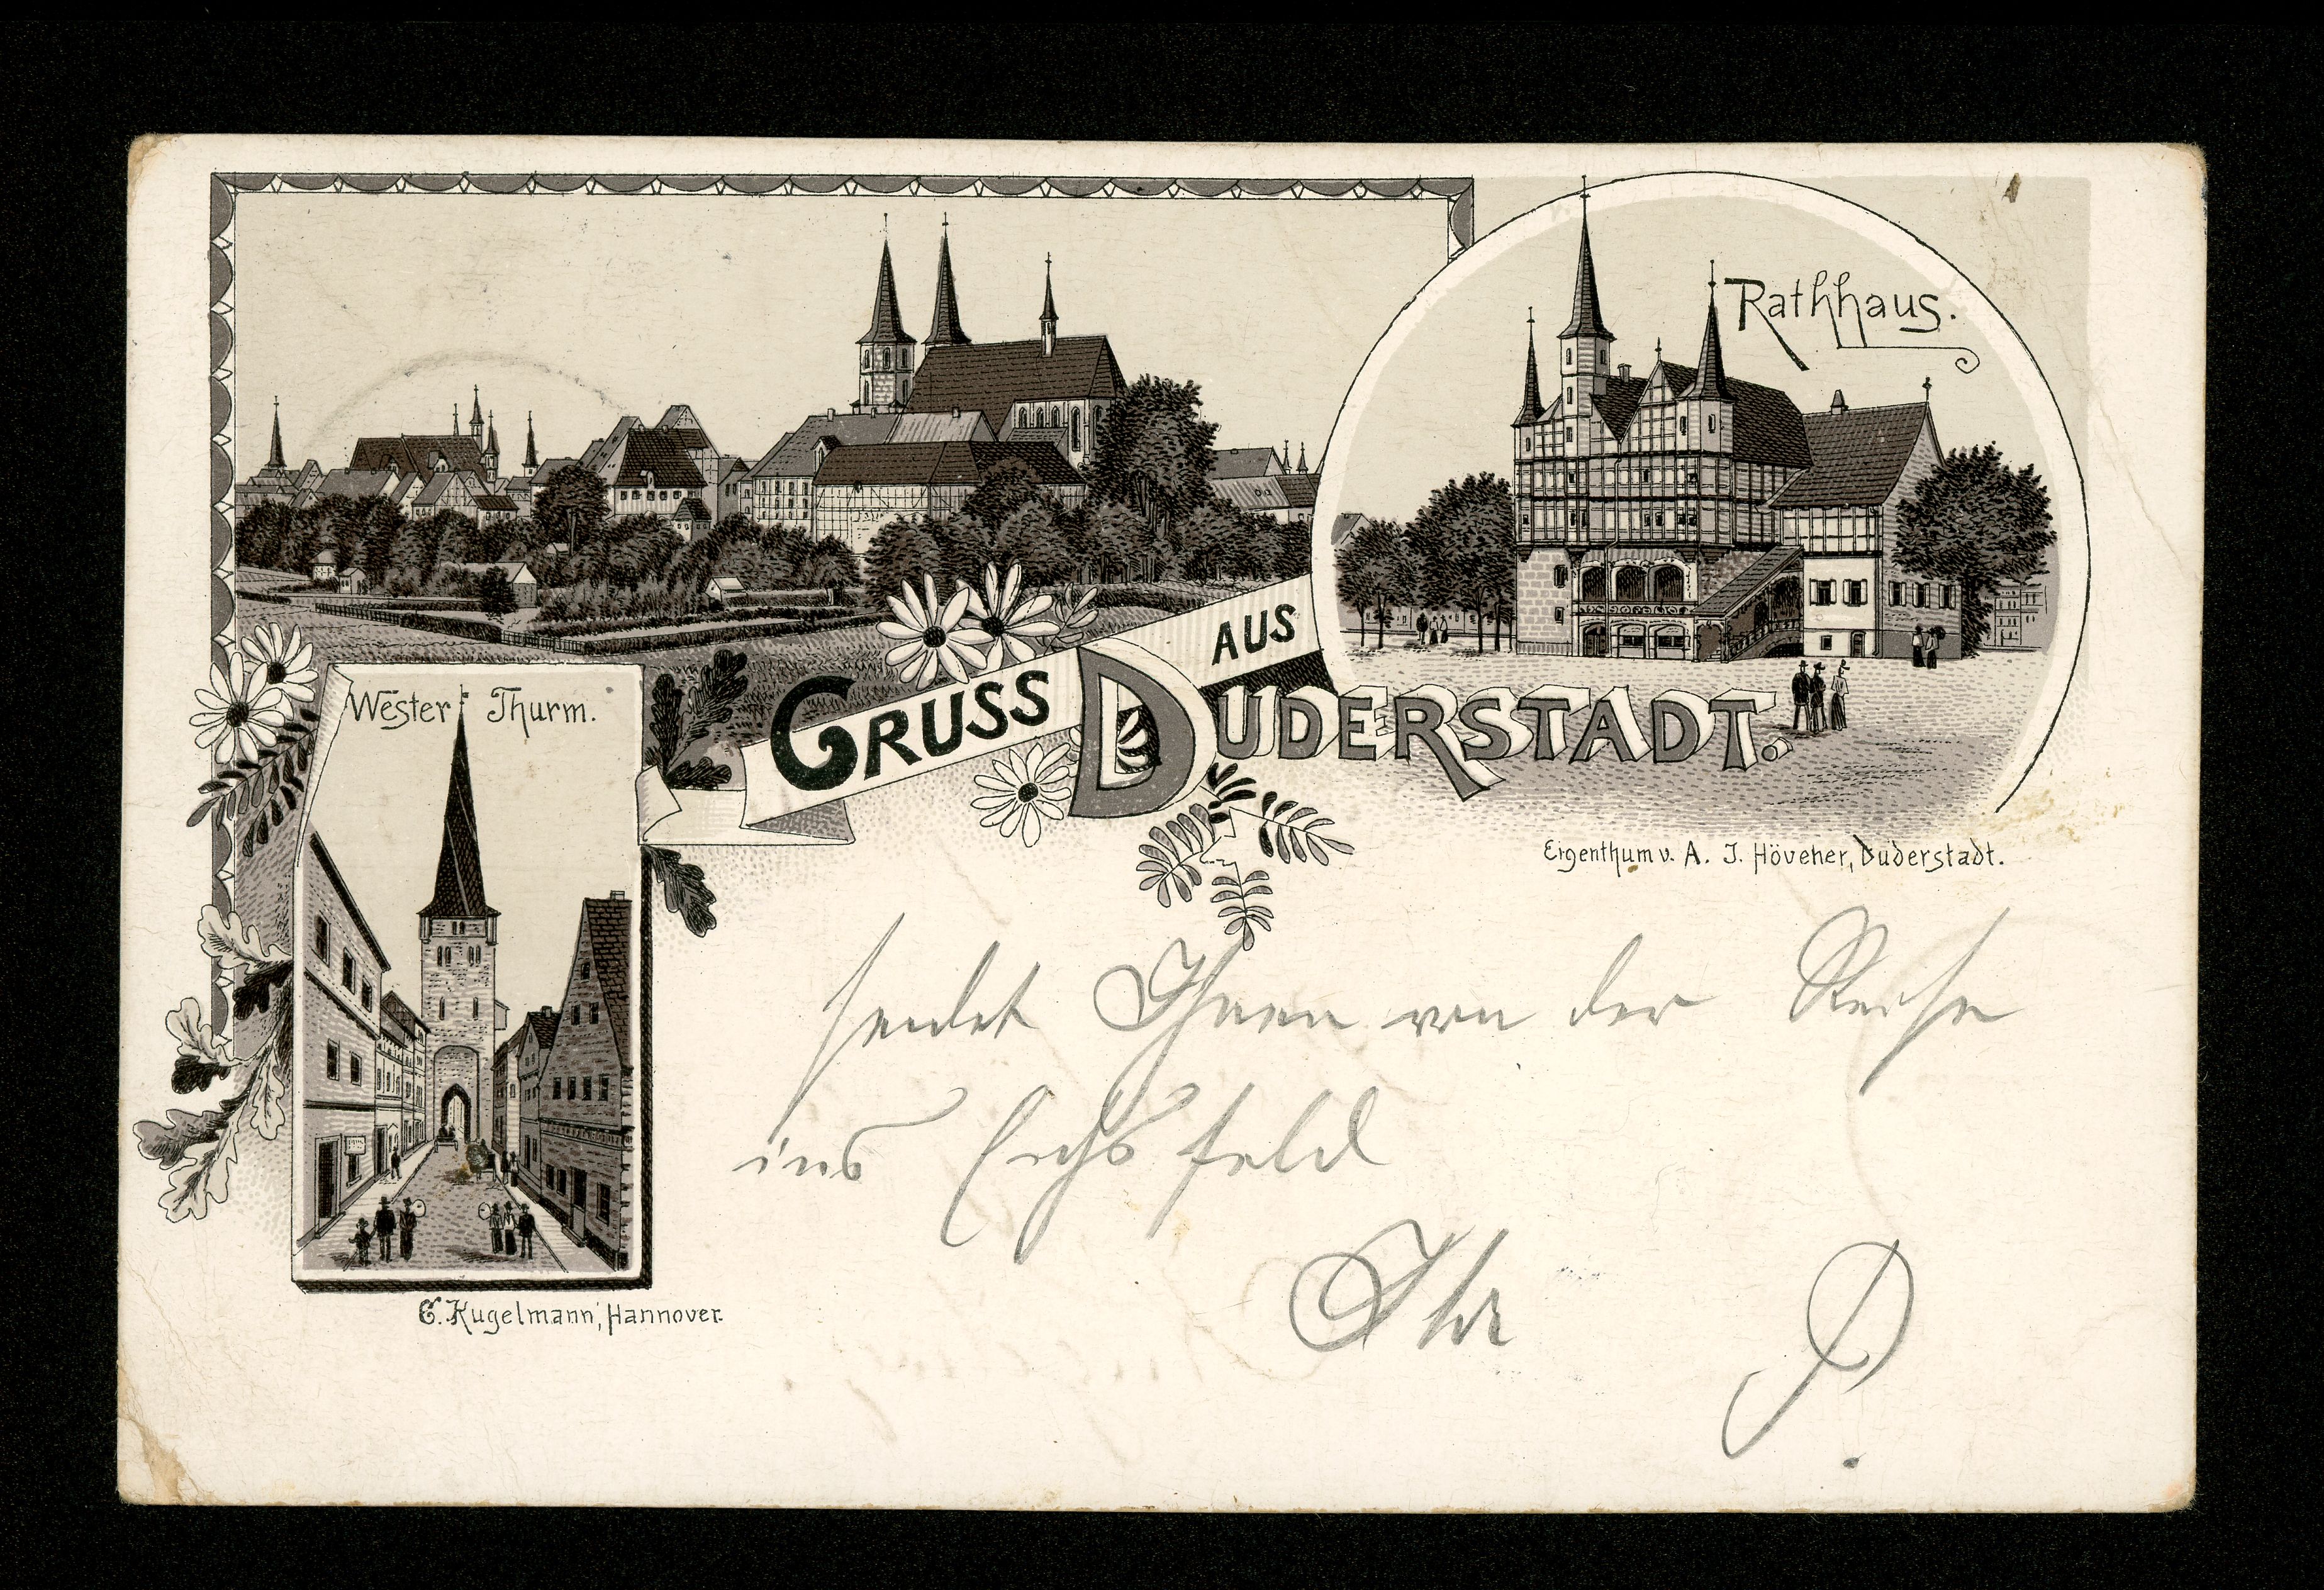 Rathhaus.
GRUSS AUS
DUDERSTADT.
Wester Thurm.
Eigenthum v. A. J. Hövener, Duderstadt.
sendet Ihnen von der Reise
ins Eichsfeld
Ihr
P.
C. Kugelmann, Hannover.